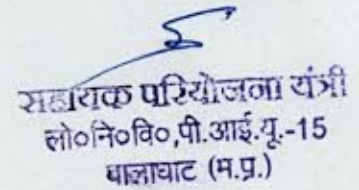 सहायक परियोजना यंत्री
लो०नि०वि०,पी.आई.यू.-15
बालाघाट (म.प्र.)